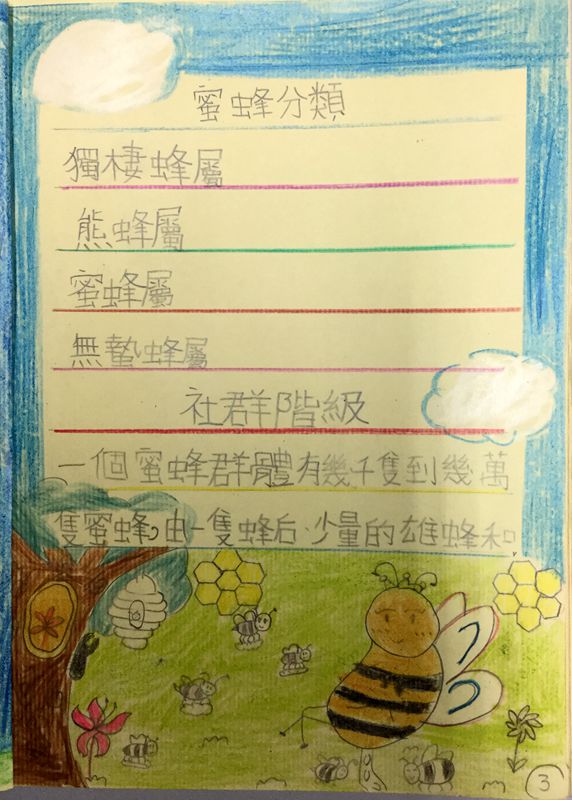 蜜蜂分類
獨棲蜂屬
熊蜂屬
蜜蜂屬
無螫蜂屬
社群階級
一個蜜蜂群體有幾千隻到幾萬
隻蜜蜂,由一隻蜂后、少量的雄蜂和
3